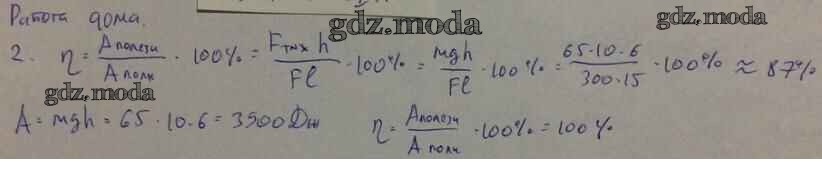 Работа дома.
gdz.moda
gdz.moda
2. η = Аполезн / Аполн · 100% = Fтяж h / Fl · 100% = mgh / Fl · 100% = 65·10·6 / 300·15 · 100% ≈ 87%
gdz.moda
A = mgh = 65 · 10·6 = 3500 Дж η = Аполезн / Аполн · 100% = 100%